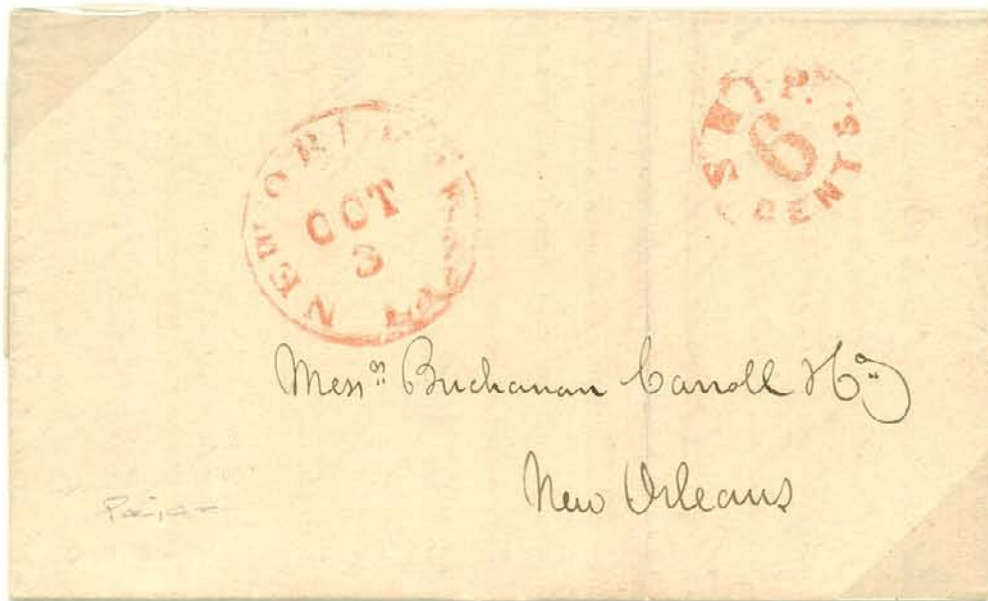 NEW ORLEANS LA
OCT
3
SHIP
6
CENTS.
Mess.rs Buchanan Carroll & Co
New Orleans